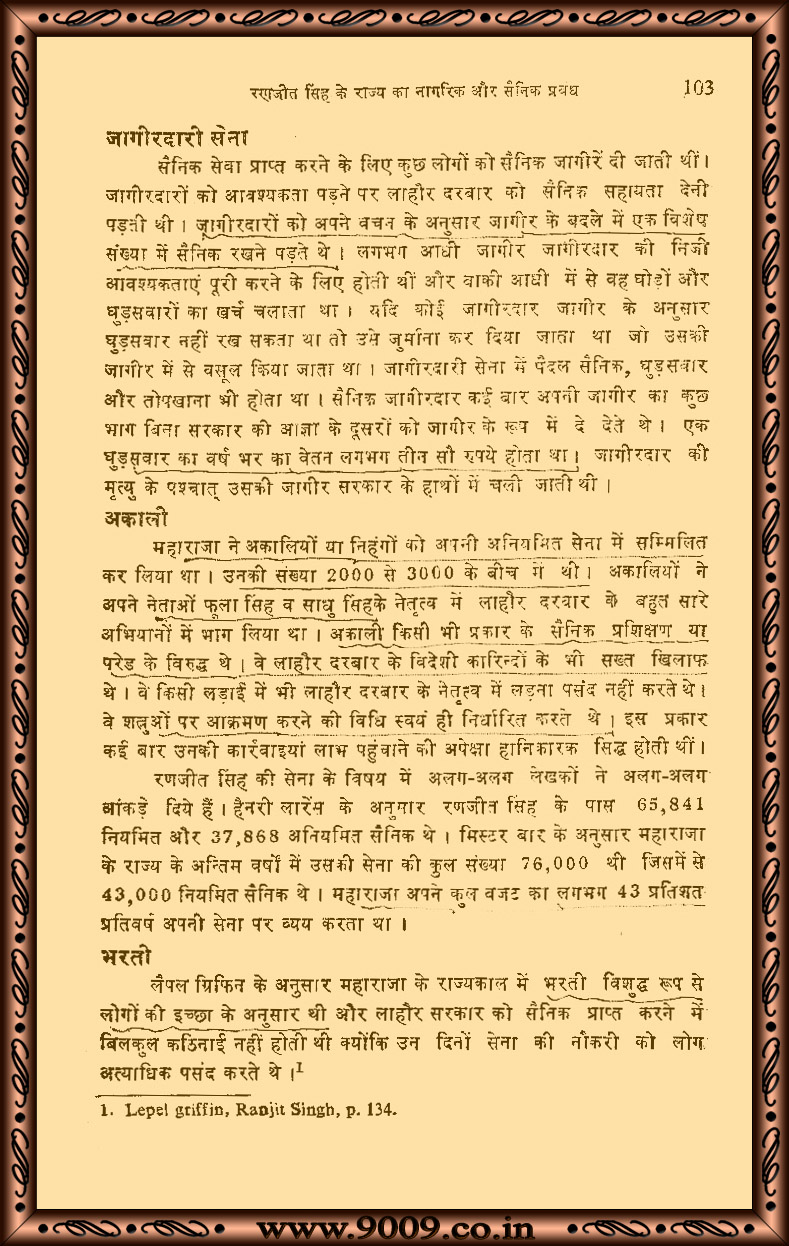 रणजीत सिंह के राज्य का नागरिक और सैनिक प्रबंध 103
जागीरदारी सेना
सैनिक सेवा प्राप्त करने के लिए कुछ लोगों को सैनिक जागीरें दी जाती थीं।
जागीरदारों को आवश्यकता पड़ने पर लाहौर दरबार को सैनिक सहायता देनी
पड़ती थी। जागीरदारों को अपने वचन के अनुसार जागीर के बदले में एक विशेष
संख्या में सैनिक रखने पड़ते थे। लगभग आधी जागीर जागीरदार की निजी
आवश्यकताएं पूरी करने के लिए होती थी और बाकी आधी में से वह घोड़ों और
घुड़सवारों का खर्च चलाता था। यदि कोई जागीरदार जागीर के अनुसार
घुड़सवार नहीं रख सकता था तो उसे जुर्माना कर दिया जाता था जो उसकी
जागीर में से वसूल किया जाता था। जागीरदारी सेना में पैदल सैनिक, घुड़सवार
और तोपखाना भी होता था। सैनिक जागीरदार कई बार अपनी जागीर का कुछ
भाग बिना सरकार की आज्ञा के दूसरों को जागीर के रूप में दे देते थे। एक
घुड़सवार का वर्ष भर का वेतन लगभग तीन सौ रुपये होता था। जागीरदार की
मृत्यु के पश्चात् उसकी जागीर सरकार के हाथों में चली जाती थी।
अकाली
महाराजा ने अकालियों या निहंगों को अपनी अनियमित सेना में सम्मिलित
कर लिया था। उनकी संख्या 2000 से 3000 के बीच में थी। अकालियों ने
अपने नेताओं फूला सिंह व साधु सिंहके नेतृत्व में लाहौर दरबार के बहुत सारे
अभियानों में भाग लिया था। अकाली किसी भी प्रकार के सैनिक प्रशिक्षण या
परेड के विरुद्ध थे। वे लाहौर दरबार के विदेशी कारिन्दों के भी सख्त खिलाफ
थे। वे किसी लड़ाई में भी लाहौर दरबार के नेतृत्व में लड़ना पसंद नहीं करते थे।
वे शत्रुओं पर आक्रमण करने की विधि स्वयं ही निर्धारित करते थे। इस प्रकार
कई बार उनकी कार्रवाइयां लाभ पहुंचाने की अपेक्षा हानिकारक सिद्ध होती थीं।
रणजीत सिंह की सेना के विषय में अलग-अलग लेखकों ने अलग-अलग
आंकड़े दिये हैं। हैनरी लारेंस के अनुसार रणजीत सिंह के पास 65,841
नियमित और 37,868 अनियमित सैनिक थे। मिस्टर बार के अनुसार महाराजा
के राज्य के अन्तिम वर्षों में उसकी सेना की कुल संख्या 76,000 थी जिसमें से
43,000 नियमित सैनिक थे। महाराजा अपने कुल बजट का लगभग 43 प्रतिशत
प्रतिवर्ष अपनी सेना पर व्यय करता था।
भरती
लैपल ग्रिफिन के अनुसार महाराजा के राज्यकाल में भरती विशुद्ध रूप से
लोगों की इच्छा के अनुसार थी और लाहौर सरकार को सैनिक प्राप्त करने में
बिलकुल कठिनाई नहीं होती थी क्योंकि उन दिनों सेना की नौकरी को लोग
अत्याधिक पसंद करते थे।1
1. Lepel griffin, Ranjit Singh, p. 134.
www.9009.co.in